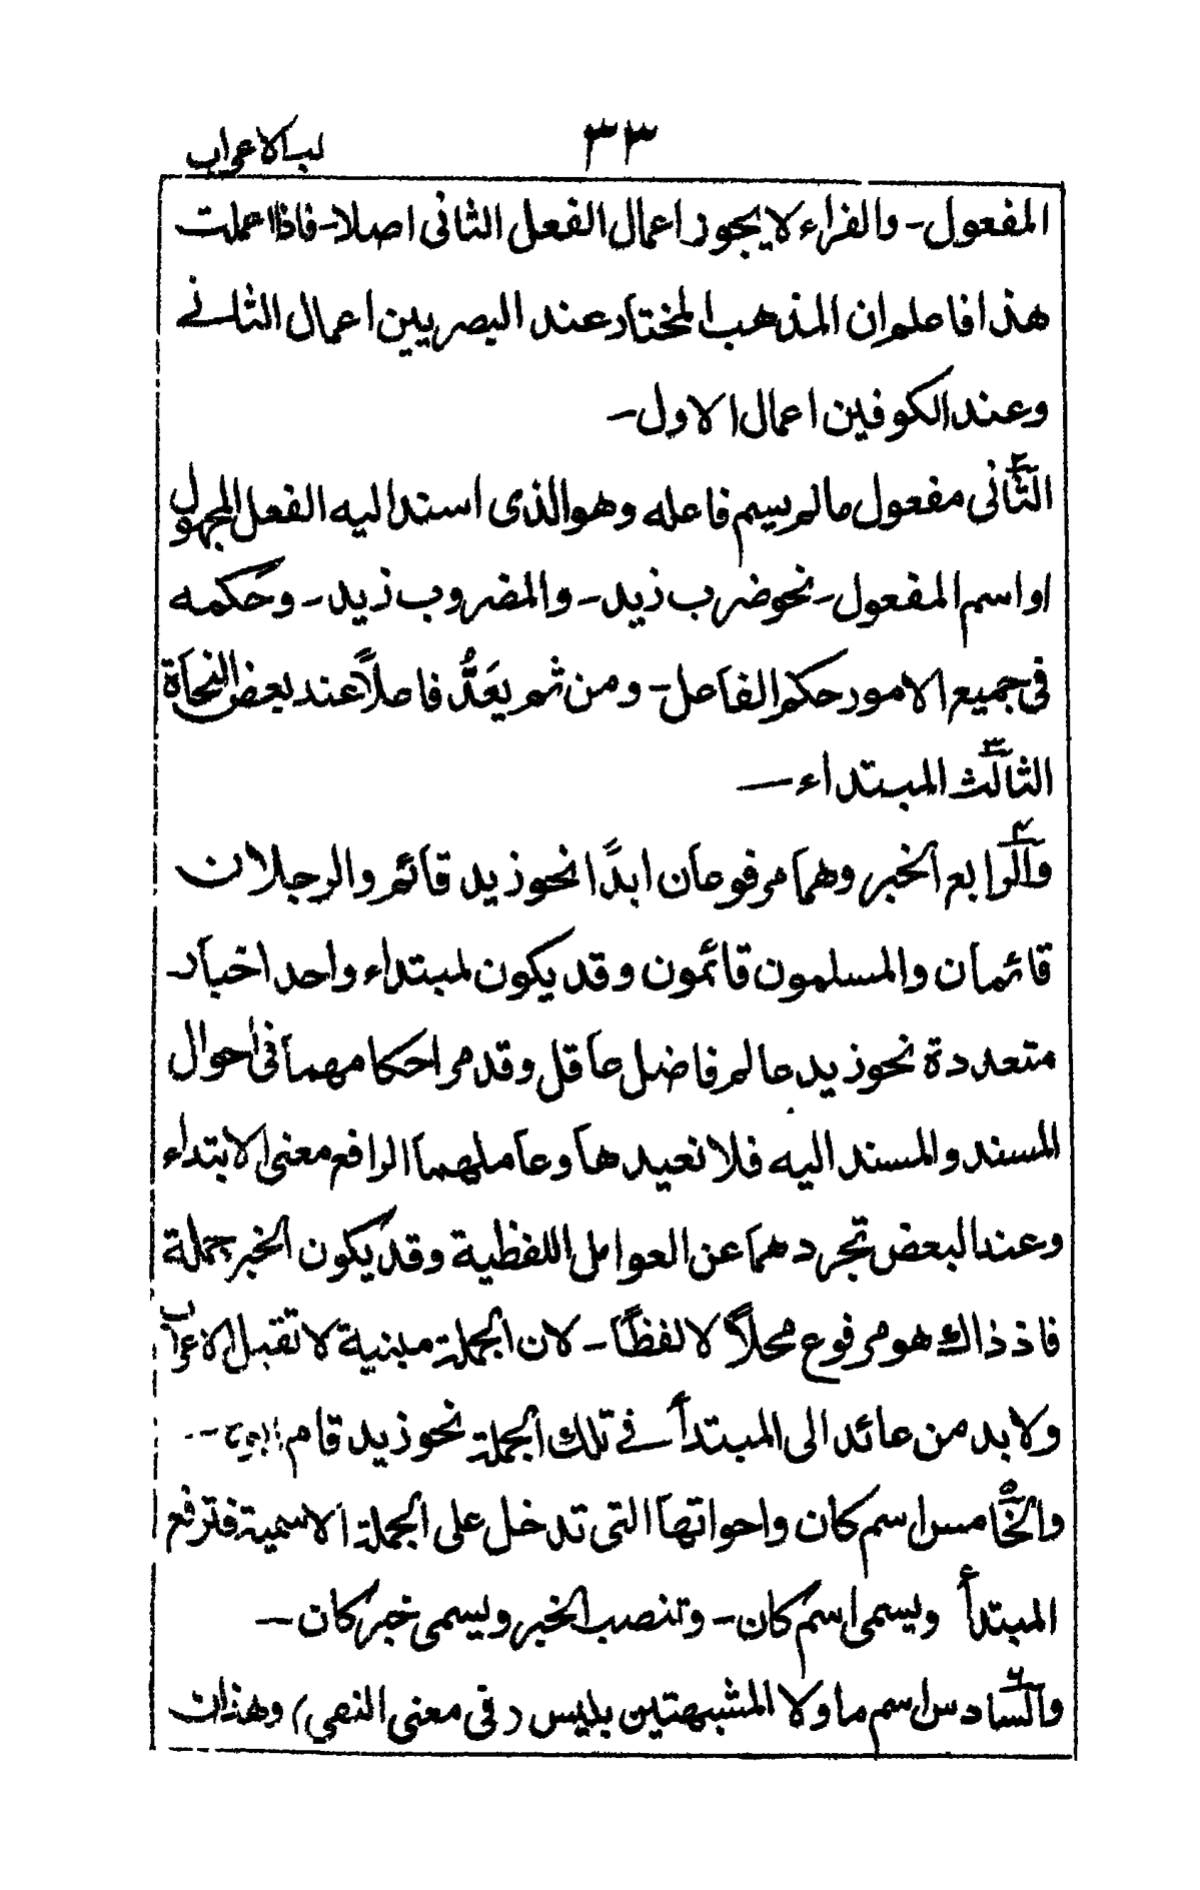 لب الاعراب
٣٣
المفعول- والفراء لا يجوز اعمال الفعل الثانى اصلا- فاذا عملت
هذا فاعلم ان المذهب المختار عند البصريين اعمال الثانے
وعند الكوفين اعمال الاول-
الثانى ٢ مفعول مالم يسم فاعله وهو الذى اسند اليه الفعل المجهول
او اسم المفعول- نحو ضرب زيد- والمضروب زيد- وحكمه
فى جميع الامور حكم الفاعل- ومن ثم يَعَدُّ فاعلاً عند بعض النحاة
الثالث ٣ المبتداء-
والرابع ٤ الخبر وهما مرفوعان ابدًا نحو زيد قائم والرجلان
قائمان والمسلمون قائمون وقد يكون لمبتداء واحد اخبار
متعددة نحو زيد عالم فاضل عاقل وقد مر احكامهما فى احوال
المسند والمسند اليه فلا نعيدها وعاملهما الرافع معنى الابتداء
وعند البعض تجردهما عن العوامل اللفظية وقد يكون الخبر جملة
فاذ ذاك هو مرفوع محلاً لا لفظًا- لان الجملة مبنية لا تقبل الاعراب
ولا بد من عائد الى المبتدأ فے تلك الجملة نحو زيد قام
والخامس ٥ اسم كان واحواتها التى تدخل على الجملة الاسمية فترفع
المبتدأ ويسمى اسم كان- وتنصب الخبر ويسمى خبر كان-
والسادس ٦ اسم ما ولا المشبهتين بليس (فى معنى النفي) وهذان